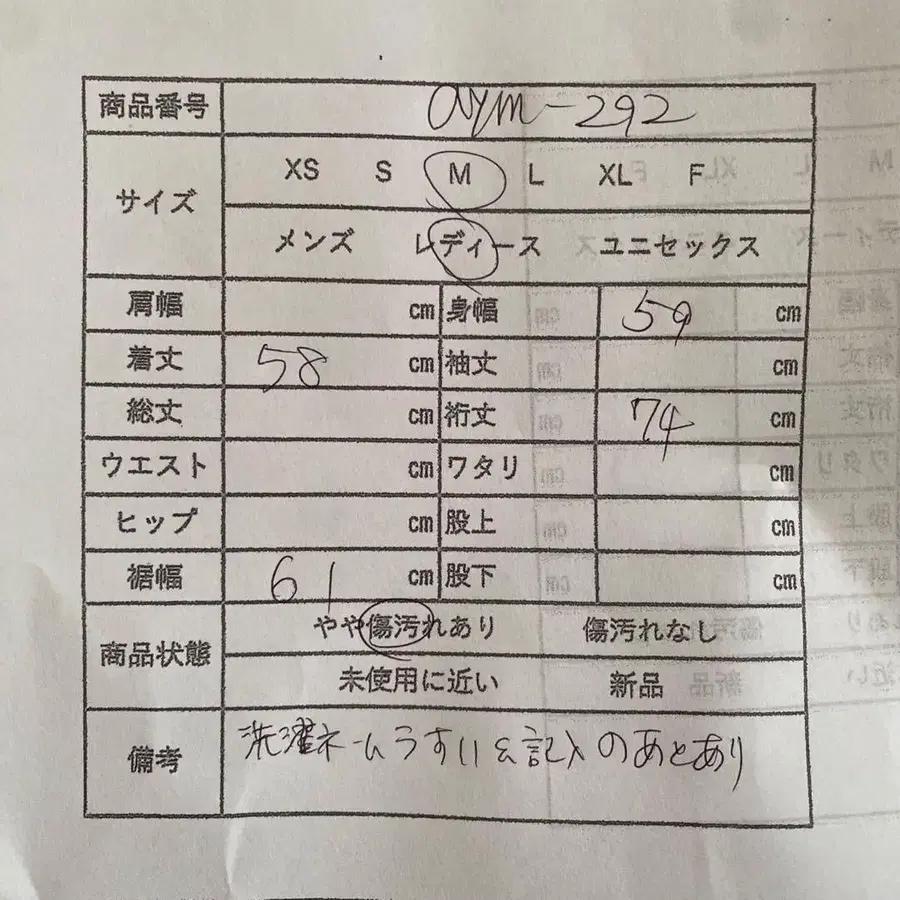 商品番号 aym-292
サイズ XS S M L XL F
メンズ レディース ユニセックス
肩幅 cm 身幅 59 cm
着丈 58 cm 袖丈 cm
総丈 cm 裄丈 74 cm
ウエスト cm ワタリ cm
ヒップ cm 股上 cm
裾幅 61 cm 股下 cm
商品状態 やや傷汚れあり 傷汚れなし
未使用に近い 新品
備考 洗濯ネームうすい&記入のあとあり